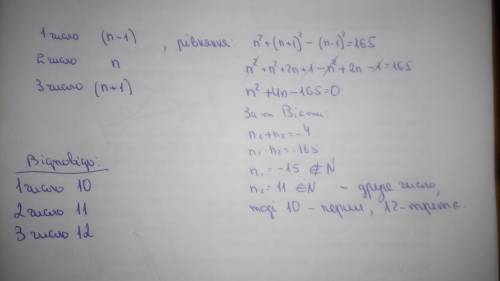 1 число (n-1)
2 число n
3 число (n+1)
, рівняння: n²+(n+1)²-(n-1)²=165
n²+n²+2n+1-n²+2n-1=165
n²+4n-165=0
За т. Вієта:
n₁+n₂=-4
n₁·n₂=-165
n₁=-15 ∉ N
n₂=11 ∈ N - друге число,
тоді 10 - перше, 12 - третє.
Відповідь:
1 число 10
2 число 11
3 число 12